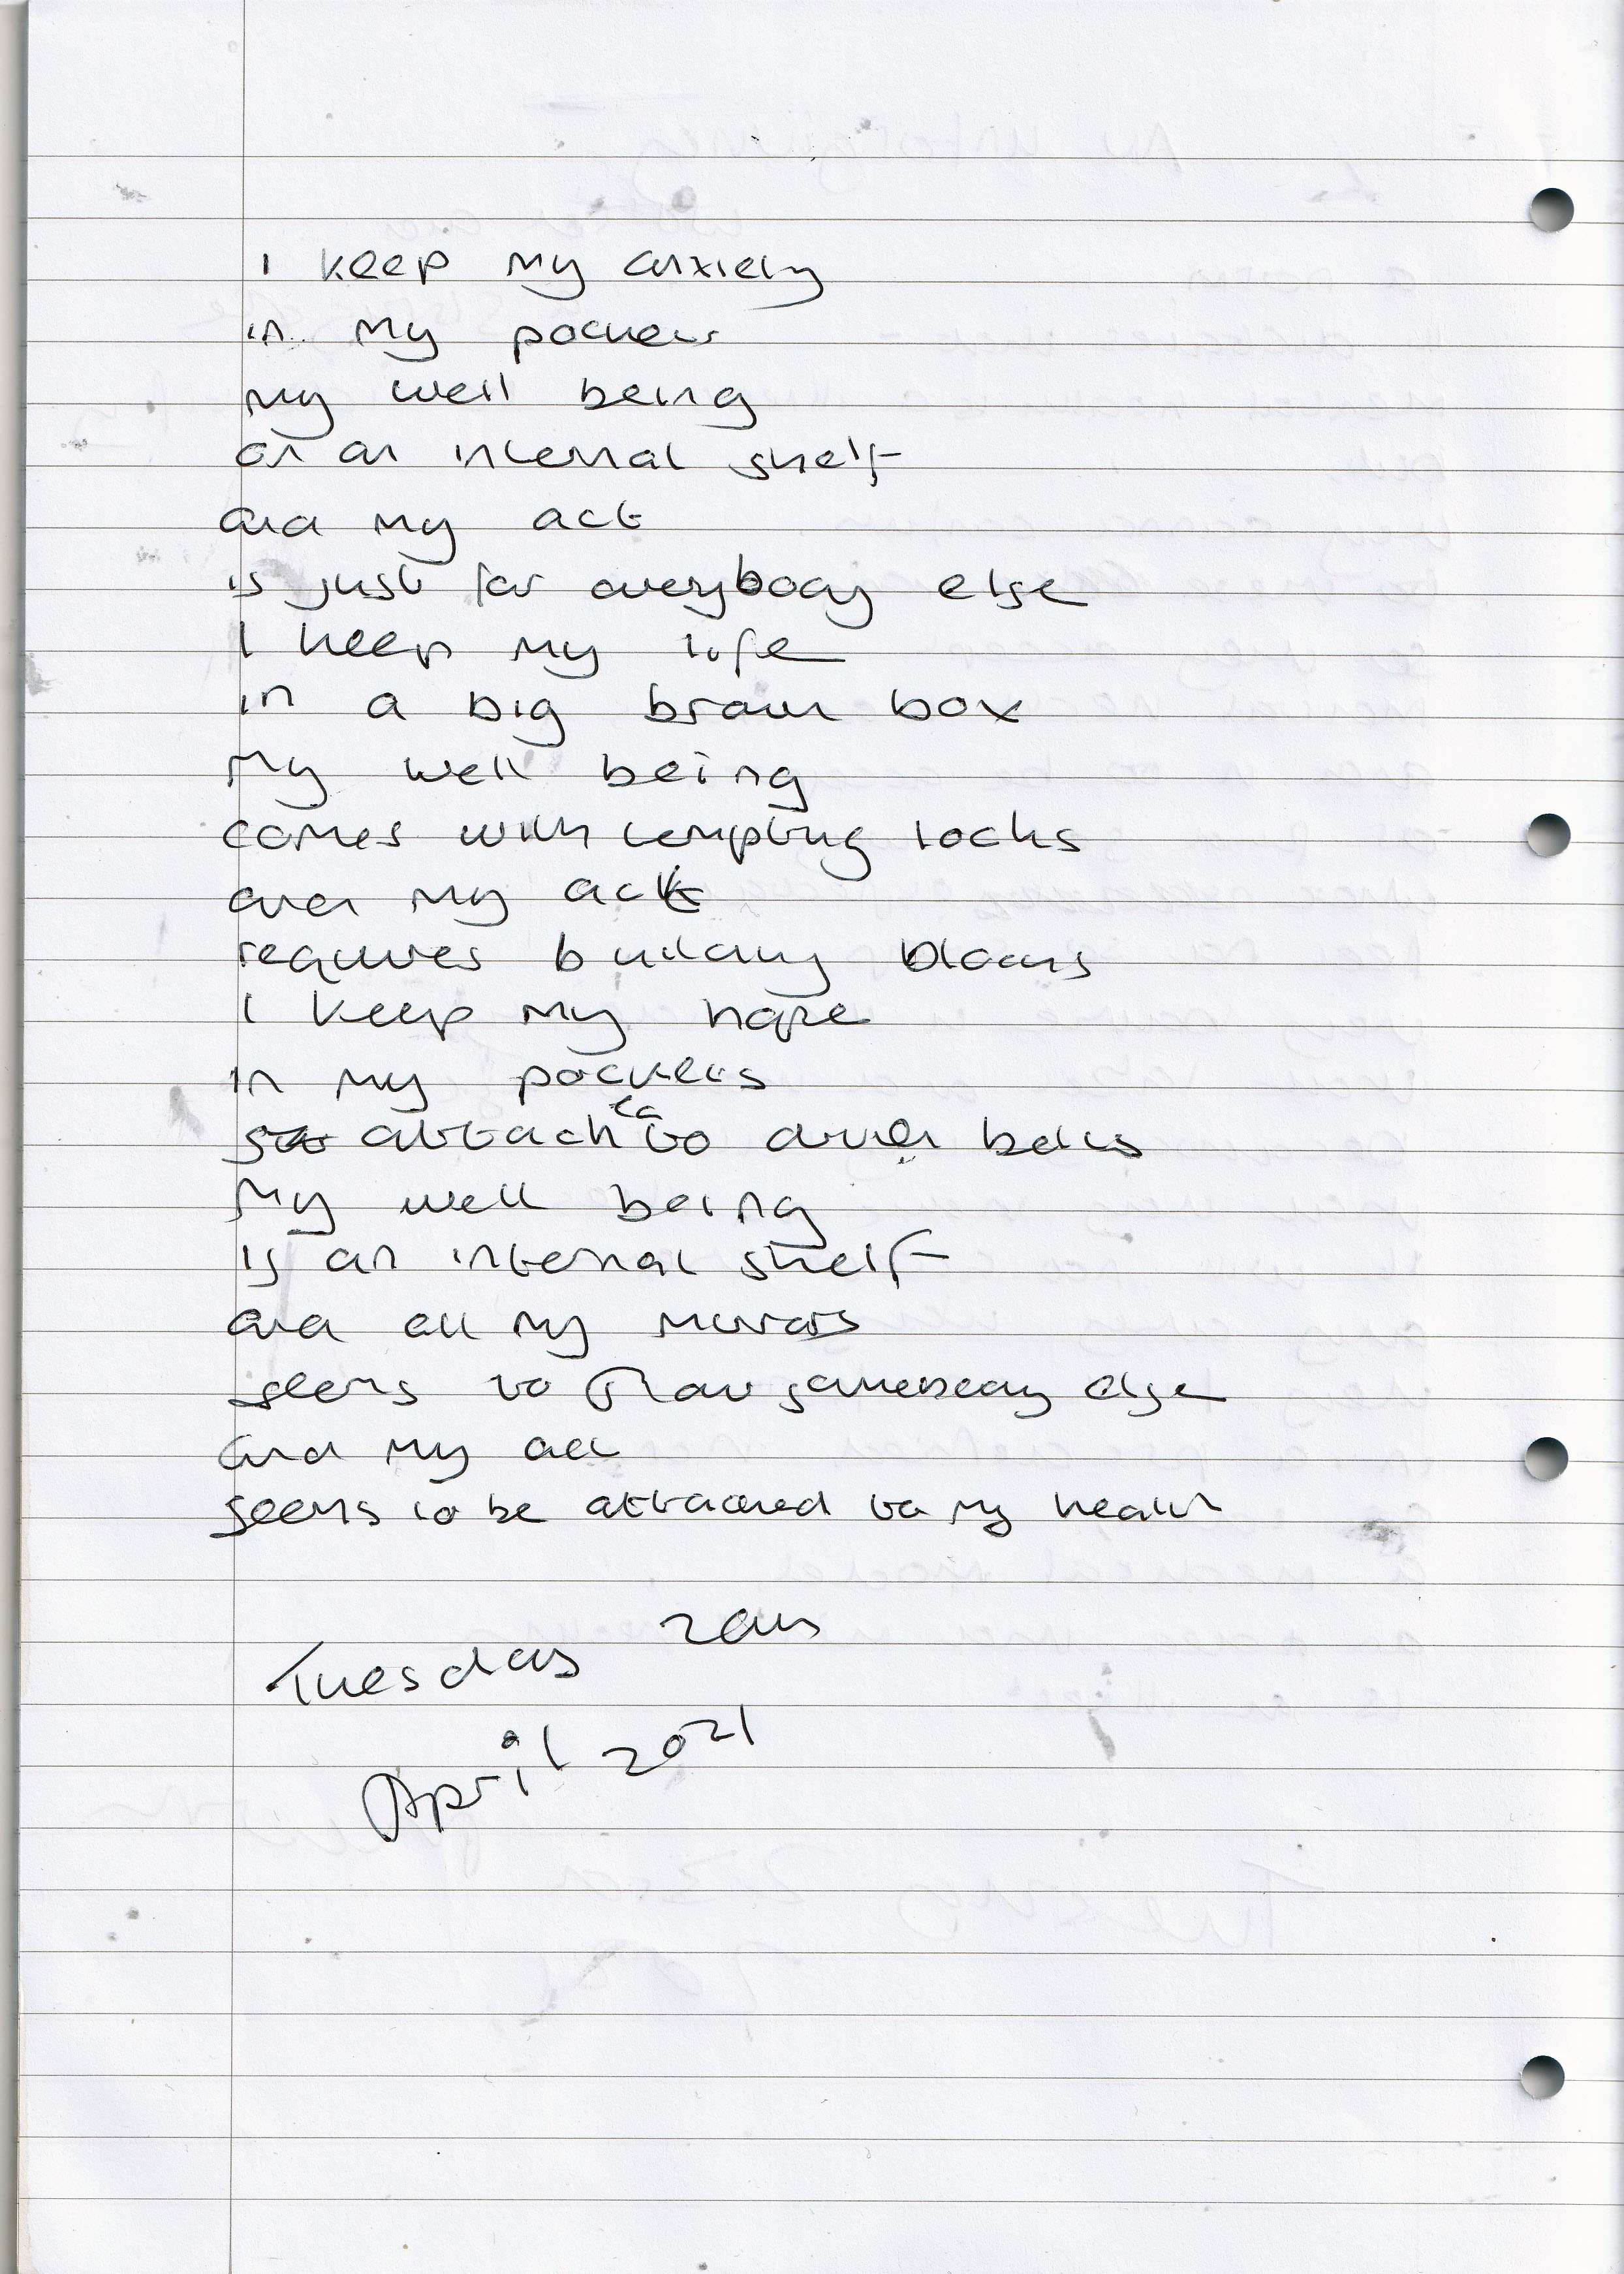 I keep my anxiety
in my pockets
my well being
on an internal shelf
and my act
is just for everybody else
I keep my life
in a big brown box
my well being
comes with tempting locks
and my act
requires building blocks
I keep my hope
in my pockets
attach to belts
my well being
is an internal shelf
and all my
seems to somebody else
and my act
seems to be attached to my health
Tuesday 20th
April 2021